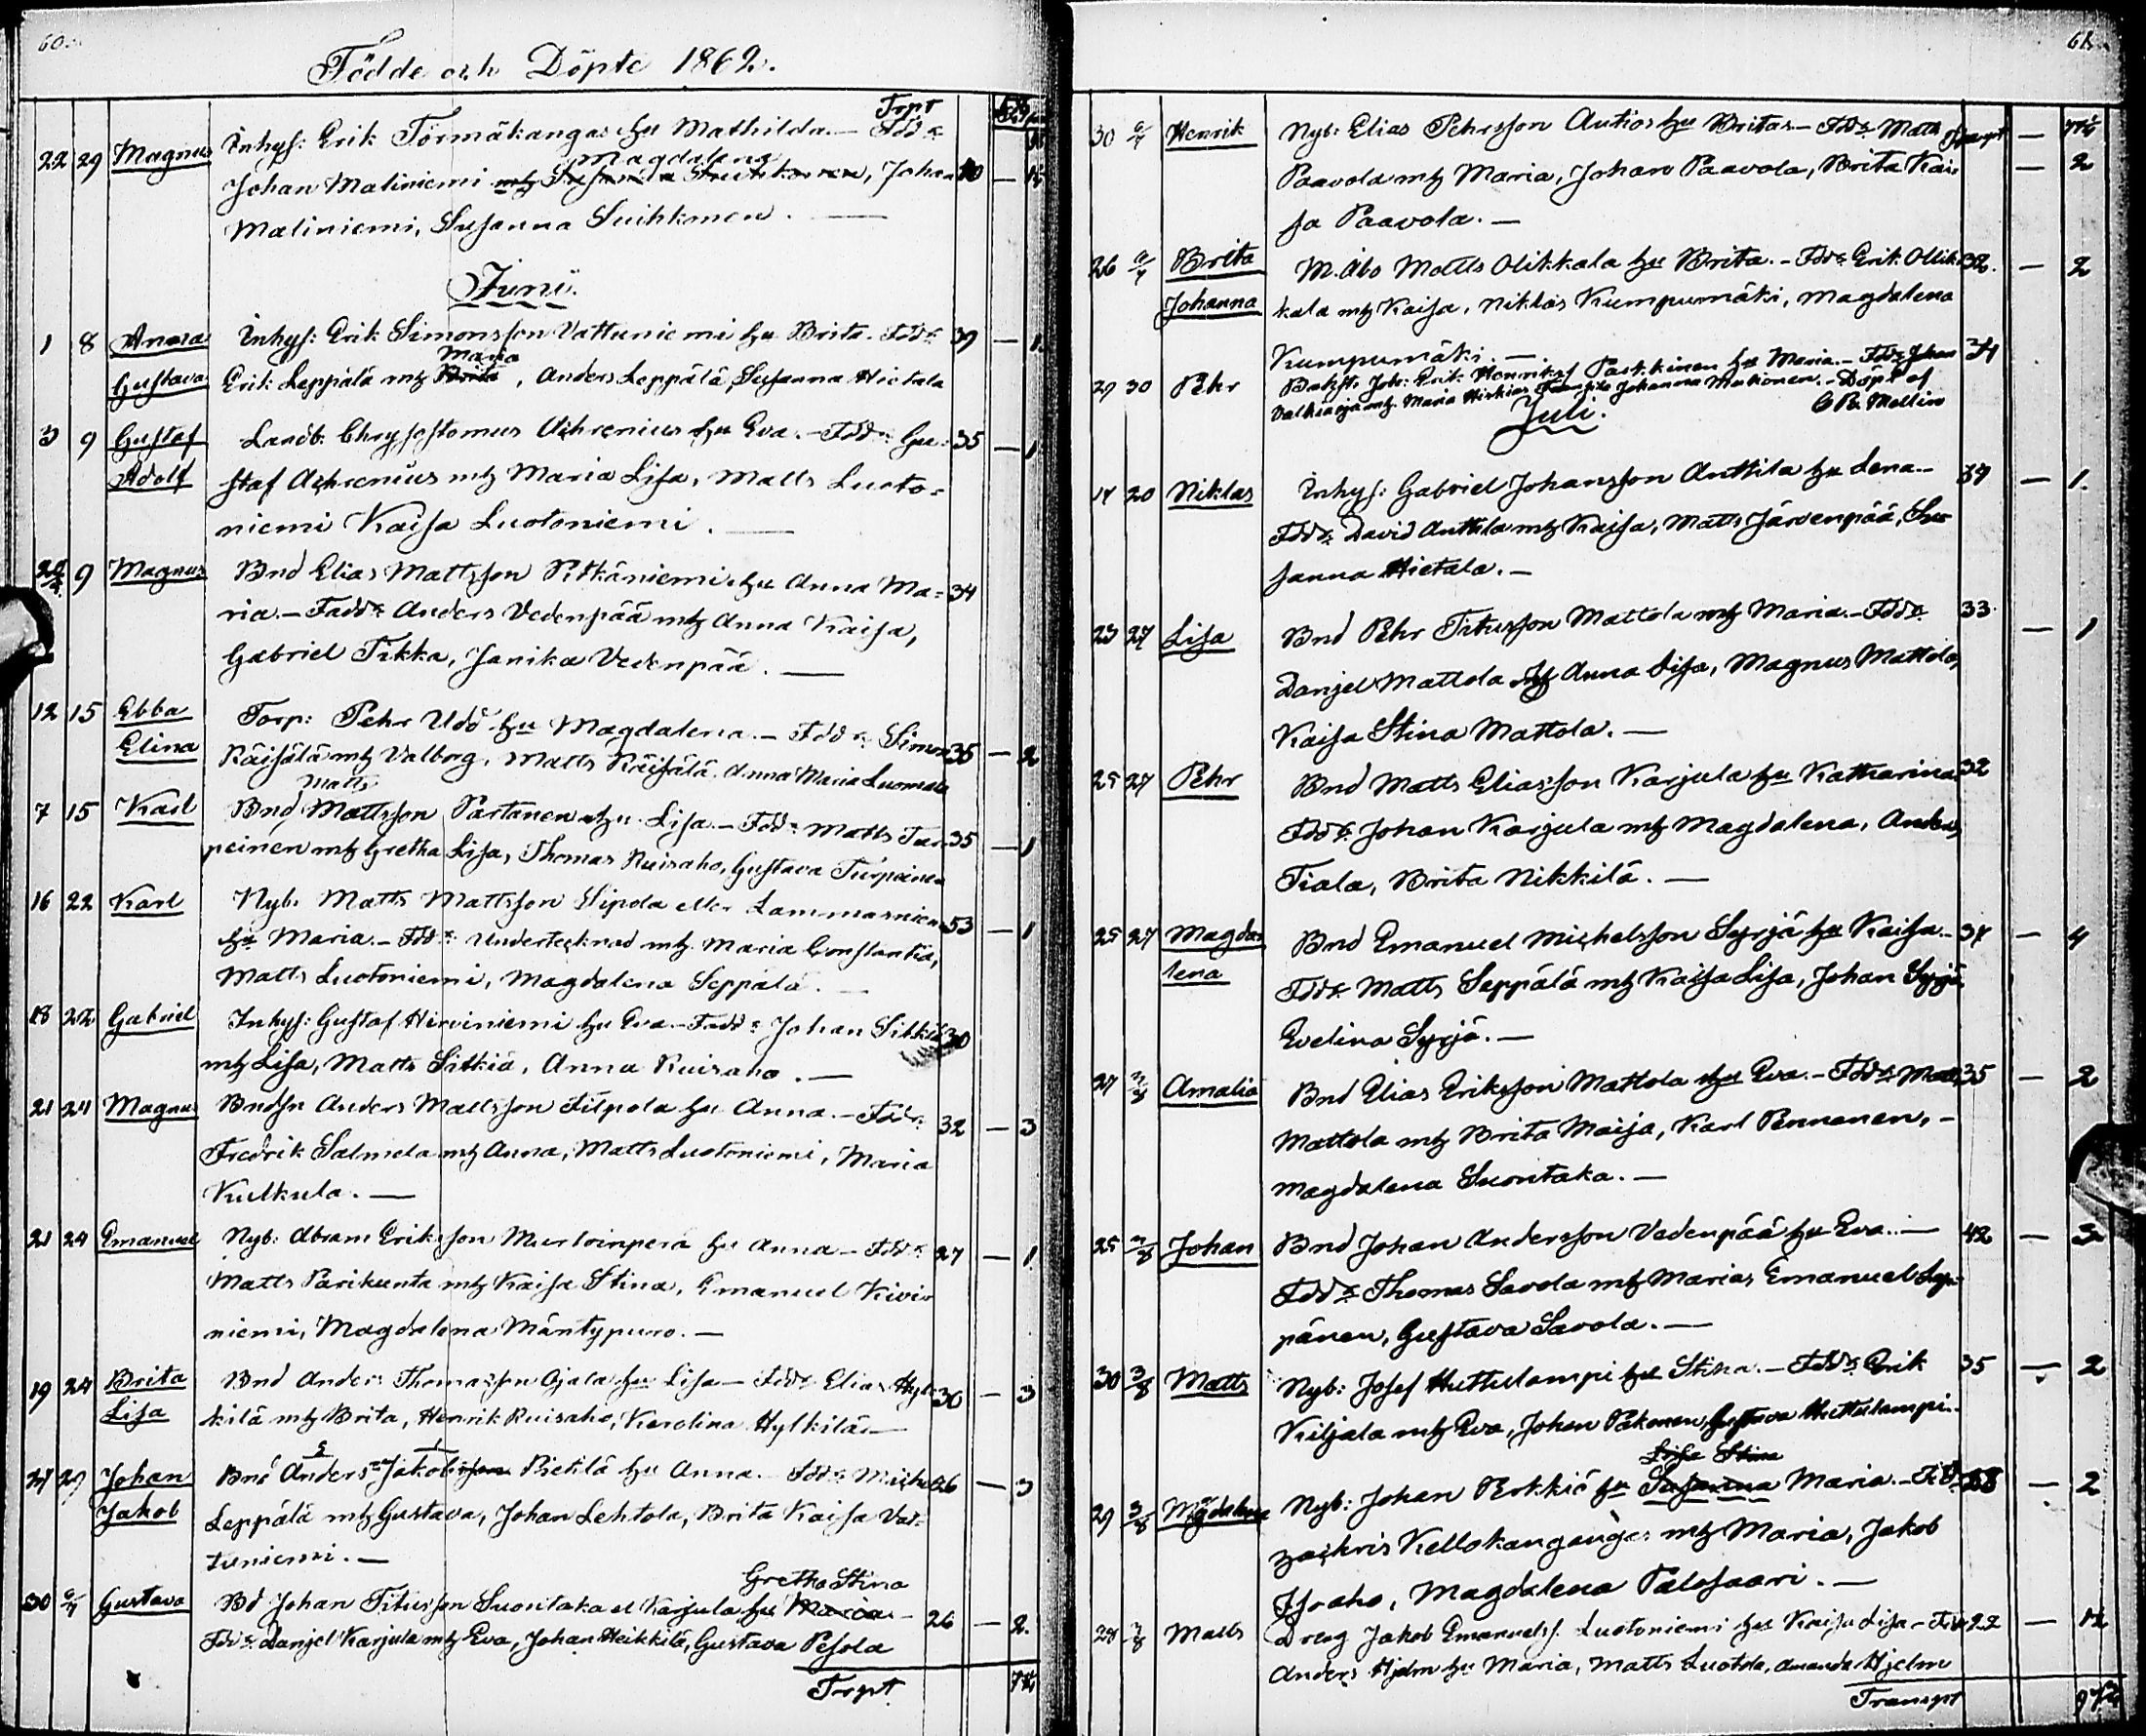 60.
Födde och Döpte 1862.
Trpt
22 29 Magnus Inhys: Erik Törmäkangas hu Mathilda. — Fdd:
Magdalena
Johan Maliniemi mh Susanna Suihkonen, Johan 40 —
Maliniemi, Susanna Suihkonen. —
Juni.
1 8 Anna Inhys: Erik Simonsson Vattuniemi hu Brita. Fdd: 39 — 1.
Maria
Gustava Erik Leppälä mh Brita, Anders Leppälä, Susanna Hietala
3 9 Gustaf Landb: Chrysostomus Achrenius hu Eva. — Fdd: Gu- 35 — 1
Adolf staf Achrenius mh Maria Lisa, Matts Luoto-
niemi Kaisa Luotoniemi. —
9 Magnus Bnd Elias Mattsson Pitkäniemi hu Anna Ma- 34
ria. — Fadd: Anders Vedenpää mh Anna Kaisa,
Gabriel Tikka, Janika Vedenpää. —
12 15 Ebba Torp: Pehr Udd hu Magdalena. — Fdd: Simon 35 — 2
Elina Räisälä mh Valborg, Matts Räisälä, Anna Maria Luomala
Matts
7 15 Karl Bnd Mattsson Partanen hu Lisa. — Fdd: Matts Tur- 35 — 1
peinen mh Gretha Lisa, Thomas Ruisaho, Gustava Turpeinen
16 22 Karl Nyb. Matts Mattsson Sipola eller Lammasniemi 53 — 1
hu Maria. — Fdd: Undertecknad mh Maria Constantia,
Matts Luotoniemi, Magdalena Seppälä. —
18 22 Gabriel Inhys: Gustaf Hirviniemi hu Eva. — Fadd: Johan Sitkiä 30
mh Lisa, Matts Sitkiä, Anna Ruisaho. —
21 24 Magnus Bndsn Anders Mattsson Filpola hu Anna. — Fdd: 32 — 3
Fredrik Salmela mh Anna, Matts Luotoniemi, Maria
Kulkula. —
21 24 Emanuel Nyb: Abram Eriksson Murtoinperä hu Anna — Fdd: 27 — 1
Matts Parikunta mh Kaisa Stina, Emanuel Kivi-
niemi, Magdalena Mäntypuro. —
19 24 Brita Bnd Anders Thomasson Ojala hu Lisa — Fdd: Elias Hyl- 30 — 3
Lisa kilä mh Brita, Henrik Ruisaho, Karolina Hylkilä —
27 29 Johan Bnd Anders Jakobsson Pietilä hu Anna. — Fdd: Michel 26 — 3
Jakob Leppälä mh Gustava, Johan Lehtola, Brita Kaisa Vat-
tuniemi. —
Gretha Stina
30 6/7 Gustava Bd Johan Titusson Suontaka el Karjula hu Maria — 26 — 2.
Fdd: Danjel Karjula mh Eva, Johan Heikkilä, Gustava Pesola
Trpt
61.
30 6/7 Henrik Nyb: Elias Pehrsson Autio hu Brita — Fdd: Matts Transpt —
Paavola mh Maria, Johan Paavola, Brita Kai- — 2
sa Paavola. —
26 6/7 Brita M. Åbo Matts Olikkala hu Brita. — Fdd: Erik Ollik- 32. — 2
Johanna kala mh Kaisa, Niklas Kumpumäki, Magdalena
Kumpumäki. — 34
29 30 Pehr Erik Henriks Parkkinen hu Maria. — Fdd: Johan
Valkiaoja mh Maria Johanna Mutionen. — Döpt af
Mellin
Juli.
14 20 Niklas Inhys: Gabriel Johansson Anttila hu Lena — 37 — 1.
Fdd: David Anttila mh Kaisa, Matts Järvenpää, Su-
sanna Hietala. —
23 27 Lisa Bnd Pehr Titusson Mattola mh Maria. — Fdd: 33 — 1
Danjel Mattola mh Anna Lisa, Magnus Mattola,
Kaisa Stina Mattola. —
25 27 Pehr Bnd Matts Eliasson Karjula hu Katharina 32
Fdd: Johan Karjula mh Magdalena, Anders
Tiala, Brita Nikkilä. —
25 27 Magda- Bnd Emanuel Michelsson Syrjä hu Kaisa. — 34 — 4
lena Fdd: Matts Seppälä mh Kaisa Lisa, Johan Syrjä
Evelina Syrjä. —
27 Amalia Bnd Elias Eriksson Mattola hu Eva. — Fdd: Matts 35 — 2
Mattola mh Brita Maija, Karl Pennanen, —
Magdalena Suontaka. —
25 Johan Bnd Johan Andersson Vedenpää hu Eva. — 42 — 3
Fdd: Thomas Savola mh Maria, Emanuel Lep-
pänen, Gustava Savola. —
30 3/8 Matts Nyb: Josef Huttulampi hu Stina. — Fdd: Erik 35 — 2
Kiljala mh Eva, Johan Pakonen, Gustava Huttulampi.
Lisa Stina
29 3/8 Magdalena Nyb: Johan Perkkiö hu Susanna Maria. — Fdd: — 2
Zachris Kellokangas mh Maria, Jakob
Isoaho, Magdalena Palosaari. —
28 Matts Dreng Jakob Emanuelss. Luotoniemi hu Kaisa Lisa — Fdd: 22 —
Anders Hjelm hu Maria, Matts Luotola, Amanda Hjelm
Transpt